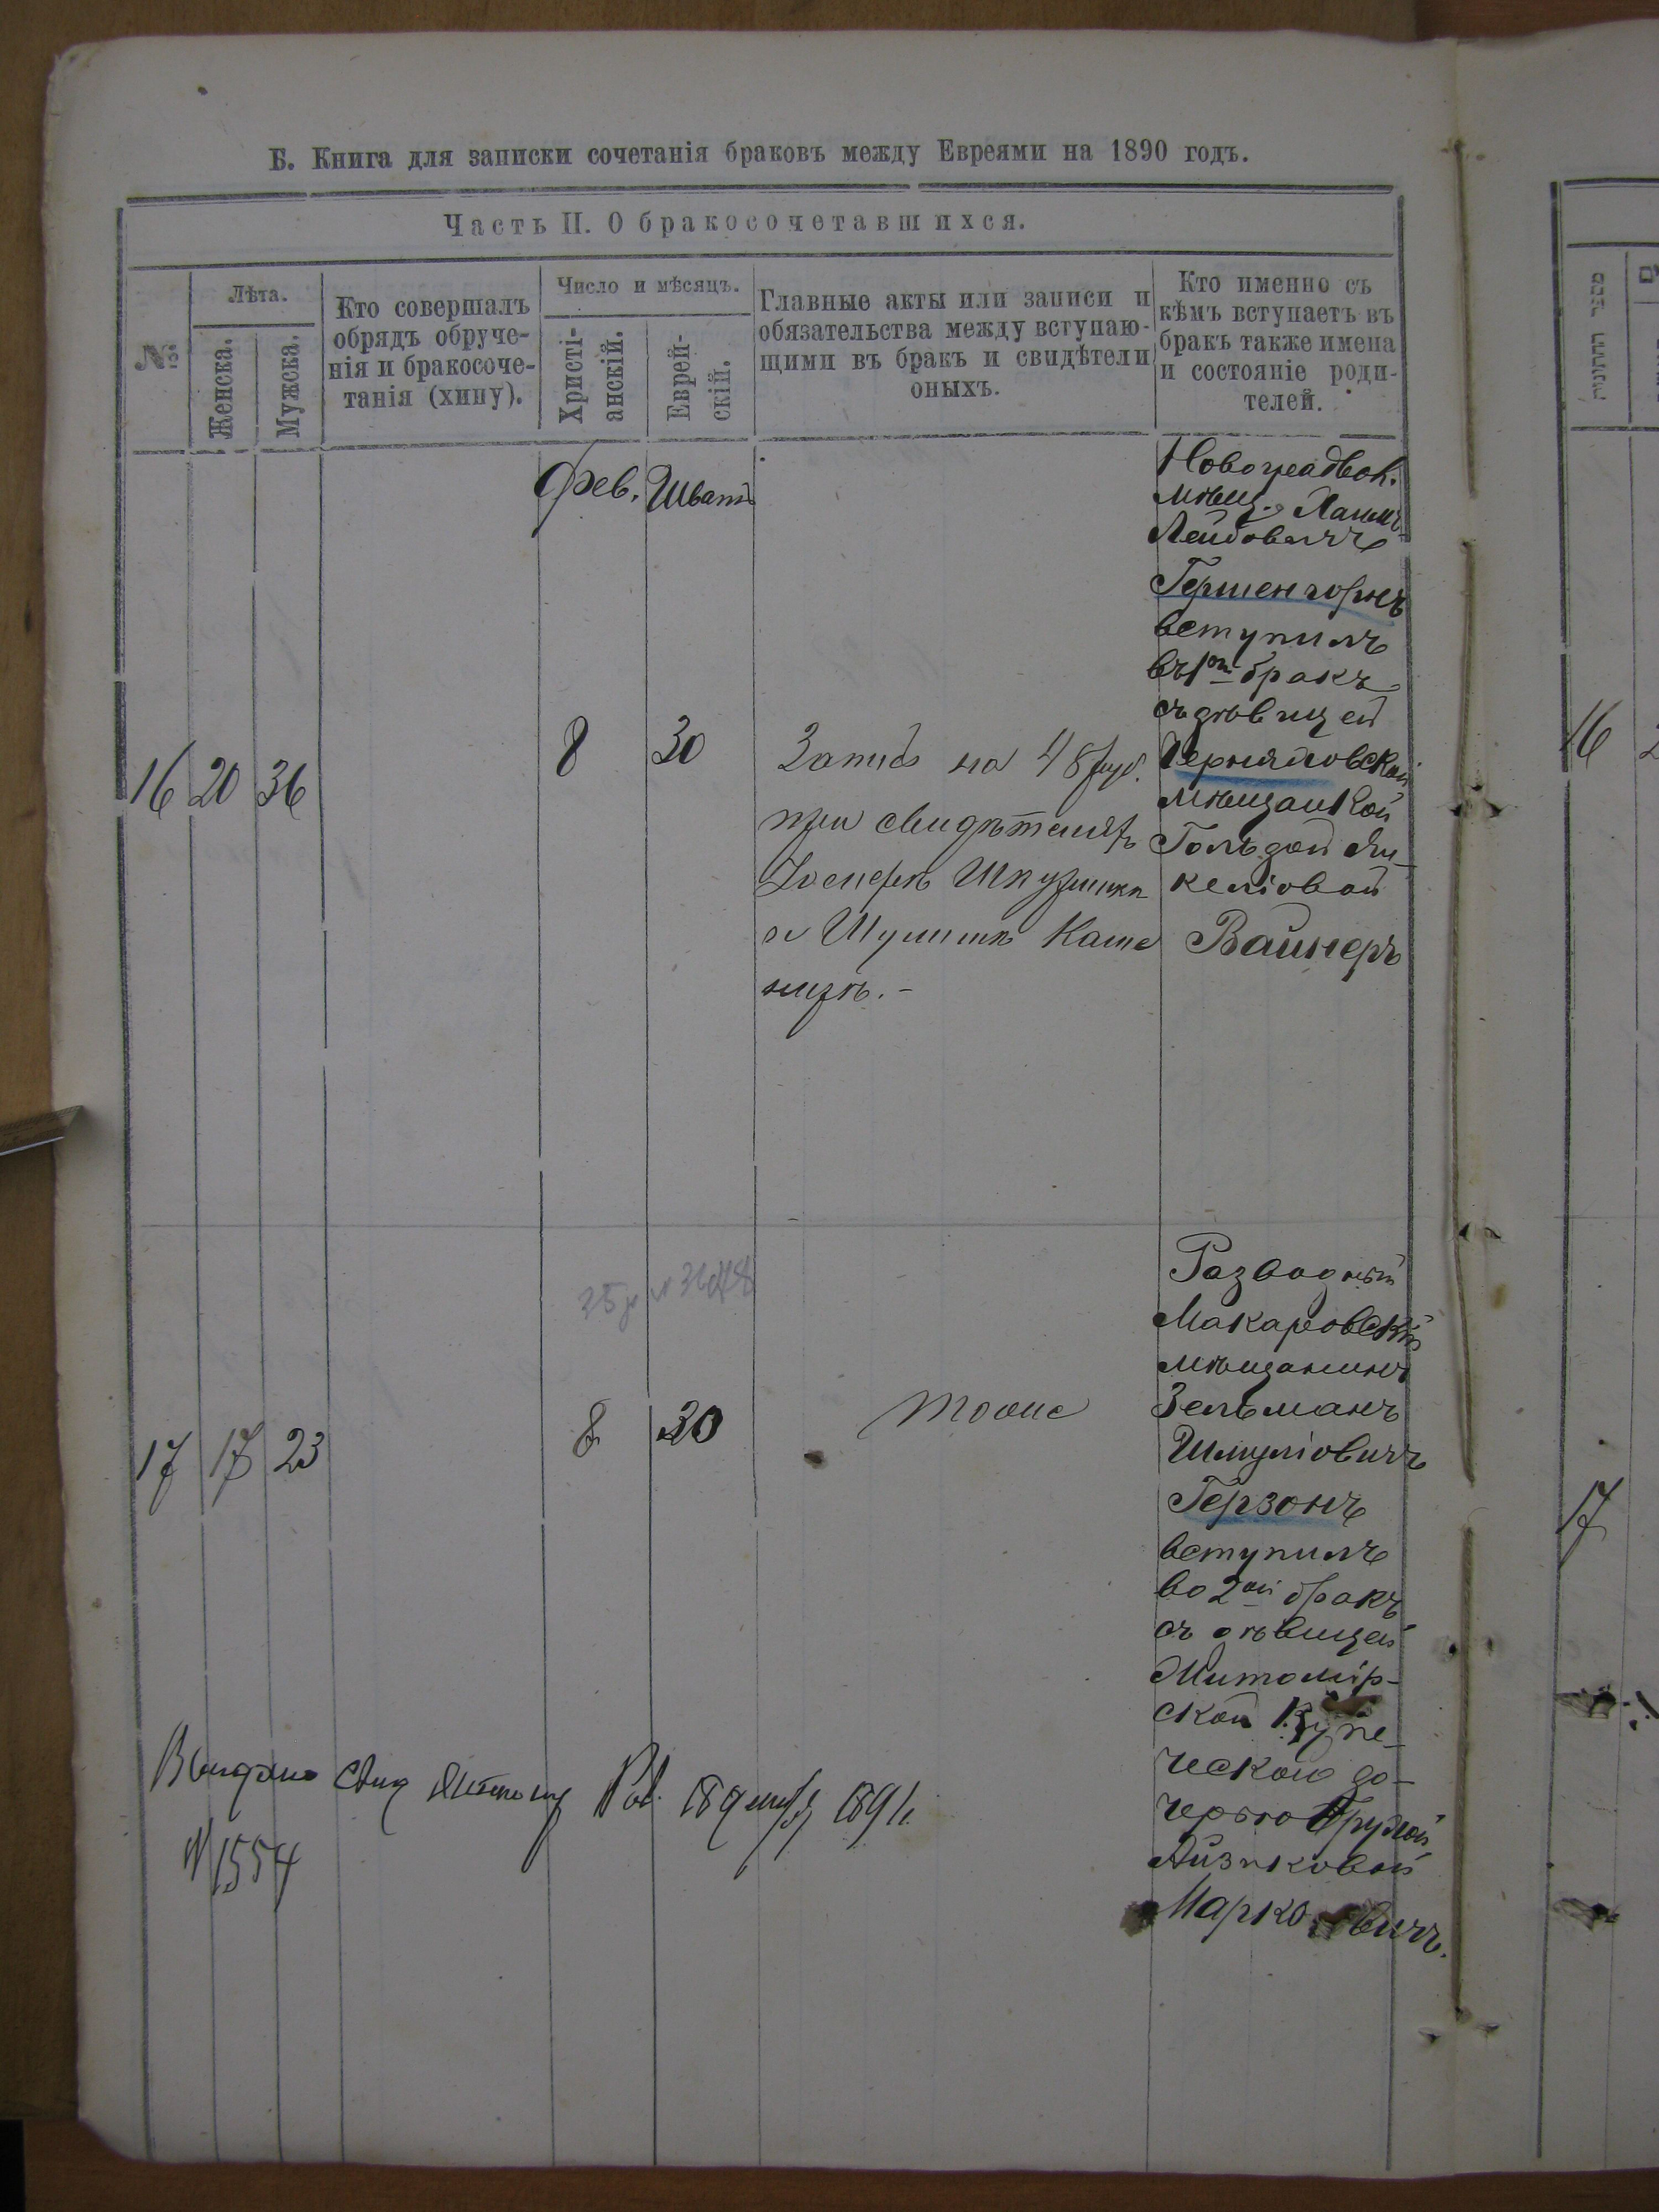 Б. Книга для записки сочетанія браковъ между Евреями на 1890 годъ.
Часть II. О бракосочетавшихся.
№
Лѣта.
Женска.
Мужска.
Кто совершалъ
обрядъ обруче-
нія и бракосоче-
танія (хипу).
Число и мѣсяцъ.
Христі-
анскій.
Еврей-
скій.
Главные акты или записи и
обязательства между вступаю-
щими въ бракъ и свидѣтели
оныхъ.
Кто именно съ
кѣмъ вступаетъ въ
бракъ также имена
и состояніе роди-
телей.
Фев. Шватъ
16 20 36
8 30
Запись на 48 руб.
при свидѣтеляхъ
Іосифѣ
и
мѣщ.
Лейбовичъ
Гершенгорнъ
вступилъ
въ 1й бракъ
съ дѣвицей
Черняховской
мѣщанкой
Гольдой Ян-
келіовой
Вайнеръ
17 17 23
8 30
тоже
Разводный
Макаровскій
мѣщанинъ
Зельманъ
Шмуліовичъ
Герзонъ
вступилъ
во 2ой бракъ
съ дѣвицей
Житомір-
ской купе-
ческою до-
черью Фрумой
Айзиковой
Марковичъ.
Выдано
1891
№ 1554
16
17